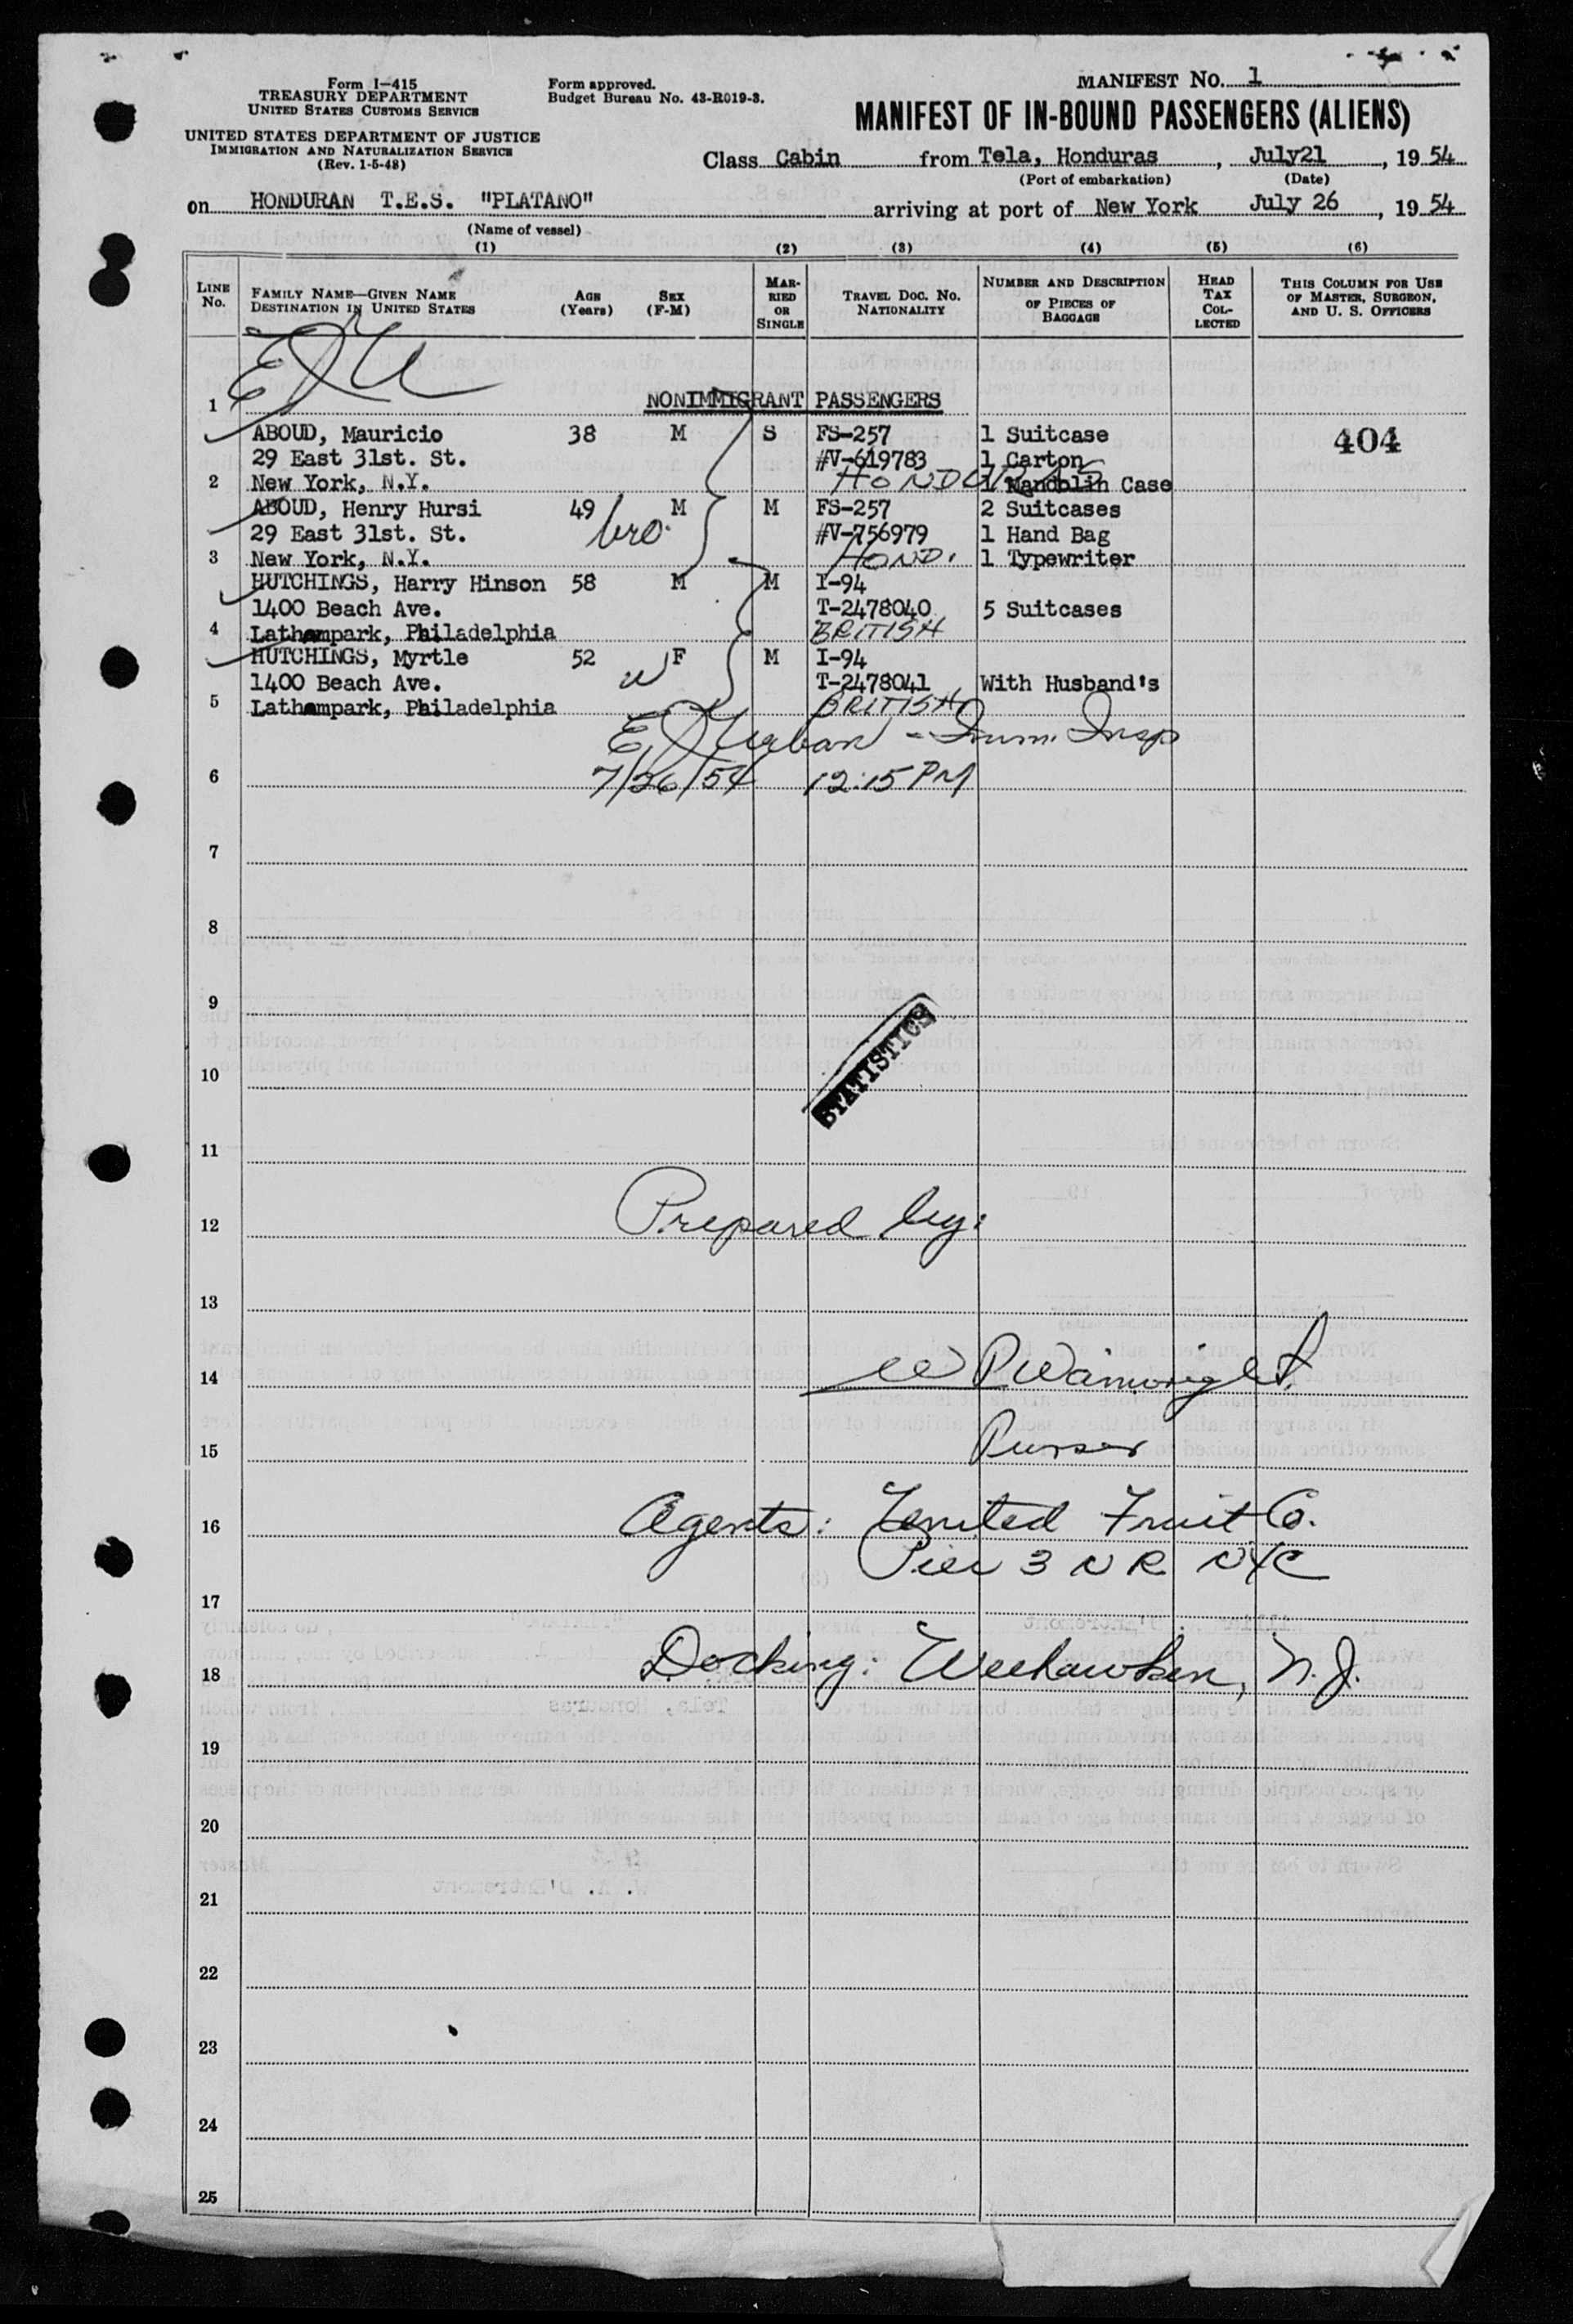 Form I-415
TREASURY DEPARTMENT
UNITED STATES CUSTOMS SERVICE
UNITED STATES DEPARTMENT OF JUSTICE
IMMIGRATION AND NATURALIZATION SERVICE
(Rev. 1-5-48)
Form approved.
Budget Bureau No. 43-R019-3.
MANIFEST NO. 1
MANIFEST OF IN-BOUND PASSENGERS (ALIENS)
Class Cabin from Tela, Honduras, July21, 19 54
(Port of embarkation) (Date)
on HONDURAN T.E.S. "PLATANO" arriving at port of New York July 26, 19 54
(Name of vessel)
(1) (2) (3) (4) (5) (6)
LINE No.
FAMILY NAME—GIVEN NAME
DESTINATION IN UNITED STATES
AGE (Years)
SEX (F-M)
MARRIED OR SINGLE
TRAVEL DOC. NO.
NATIONALITY
NUMBER AND DESCRIPTION OF PIECES OF BAGGAGE
HEAD TAX COLLECTED
THIS COLUMN FOR USE OF MASTER, SURGEON, AND U. S. OFFICERS
1 NONIMMIGRANT PASSENGERS
ABOUD, Mauricio 38 M S FS-257 1 Suitcase 404
29 East 31st. St. #V-619783 1 Carton
2 New York, N.Y. HONDURAS 1 Mandolin Case
ABOUD, Henry Hursi 49 M M FS-257 2 Suitcases
29 East 31st. St. bro. #V-756979 1 Hand Bag
3 New York, N.Y. HOND. 1 Typewriter
HUTCHINGS, Harry Hinson 58 M M I-94
1400 Beach Ave. T-2478040 5 Suitcases
4 Lathampark, Philadelphia BRITISH
HUTCHINGS, Myrtle 52 W F M I-94
1400 Beach Ave. T-2478041 With Husband's
5 Lathampark, Philadelphia BRITISH
E J Urban - Imm. Insp
6 7/26/54 12:15 PM
7
8
9
STATISTICS
10
11
12 Prepared by:
13
14 W P Wainwright,
15 Purser
16 Agents: United Fruit Co.
Pier 3 N R NYC
17
18 Docking: Weehawken, N.J.
19
20
21
22
23
24
25